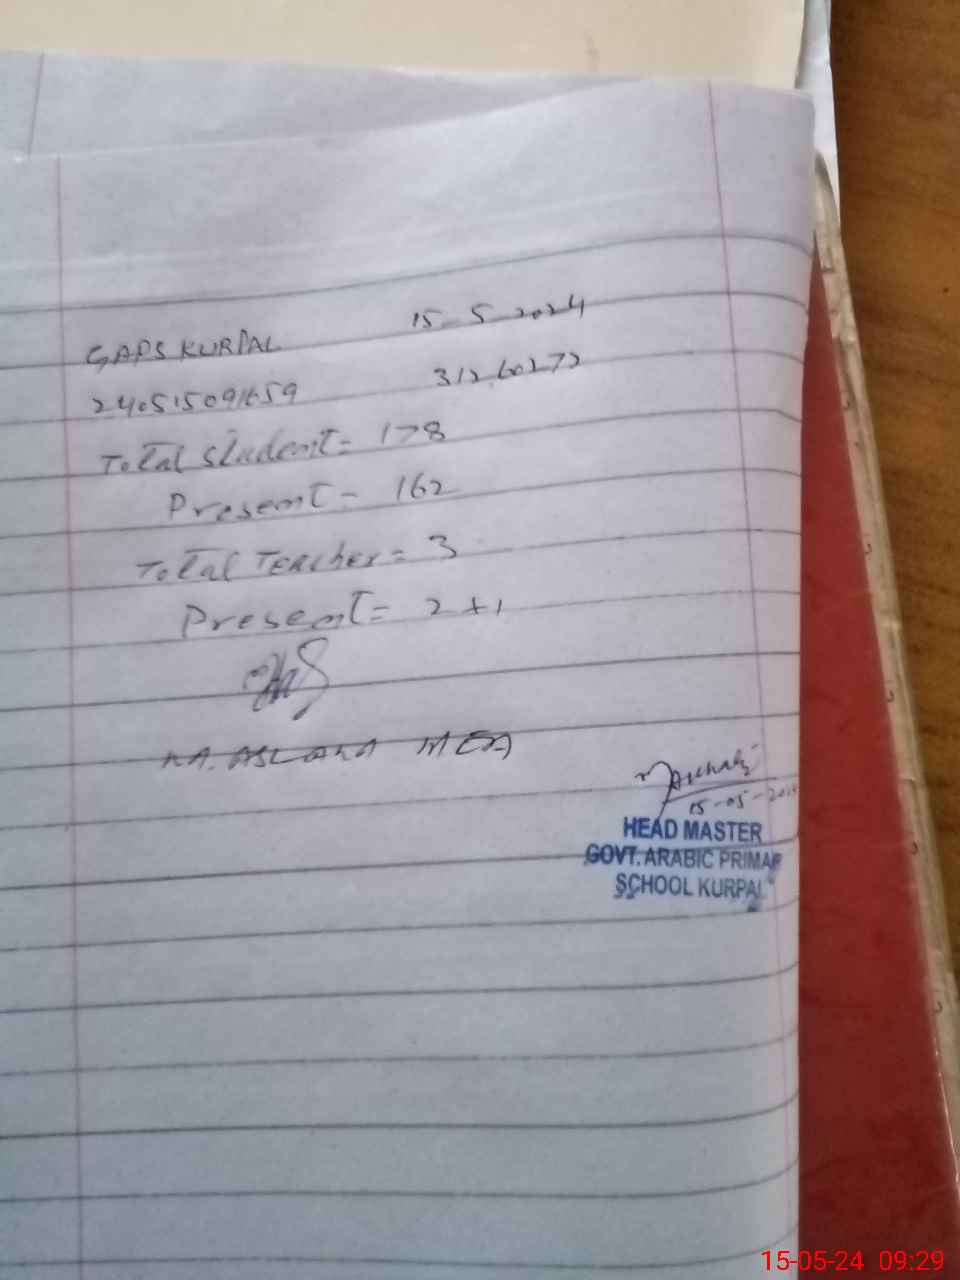 GAPS KURPAL 15-5-2024
240515091659 31260272
Total Student = 178
Present - 162
Total Teacher = 3
Present = 2+1
MEA
15-05-2024
HEAD MASTER
GOVT. ARABIC PRIMAR
SCHOOL KURPAL
15-05-24 09:29